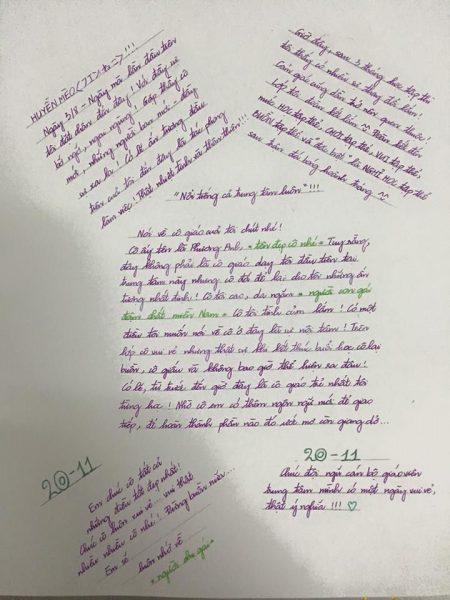 HUYỀN MEO (フエンちゃん) !!!
Ngày 5/8 - Ngày mà lần đầu tiên
tôi đặt chân đến đây! Với đầy sự
bỡ ngỡ, ngại ngùng! Gặp thầy cô
mới, những người bạn mới - đông
vui sao lại! Có lẽ ấn tượng đầu
tiên của tôi đến đây là tác phong
làm việc! Thật nhiệt tình và thân thiện!!!
Giờ đây, sau 3 tháng học tập thì
tôi thấy có nhiều sự thay đổi lắm!
Cảm giác cũng dần trở nên quen thuộc!
Lớp tôi đoàn kết lắm ^^ Đoàn kết đến
mức HỌC tập thể, CHƠI tập thể, VUI tập thể,
BUỒN tập thể và đặc biệt là NGHỈ HỌC tập thể
"Nổi tiếng cả trung tâm luôn"!!!
Nói về cô giáo của tôi chút nhỉ!
Cô ấy tên là Phương Anh, *tên đẹp cô nhể* Tuy rằng,
đây không phải là cô giáo dạy tôi đầu tiên tại
trung tâm này nhưng cô đã để lại cho tôi những ấn
tượng nhất định! Cô tôi cao, da ngăm *người con gái
đậm chất miền Nam* Cô tôi tình cảm lắm! Có một
điều tôi muốn nói về cô ở đây là sự nội tâm! Trên
lớp cô vui vẻ nhưng thật sự khi kết thúc buổi học cô lại
buồn, cô giấu và không bao giờ thể hiện ra đâu!
Có lẽ, từ trước đến giờ đây là cô giáo trẻ nhất tôi
từng học! Nhờ cô em có thêm ngôn ngữ mới để giao
tiếp, để hoàn thành phần nào đó ước mơ còn giang dở...
20-11
Em chúc cô tất cả
những điều tốt đẹp nhất!
Chúc cô luôn vui vẻ - vui thật
nhiều nhiều cô nhé! Đừng buồn nữa...
Em sẽ luôn nhớ về
*người chị gái*
20-11
Chúc đội ngũ cán bộ giáo viên
trung tâm mình có một ngày vui vẻ,
thật ý nghĩa!!! ♡